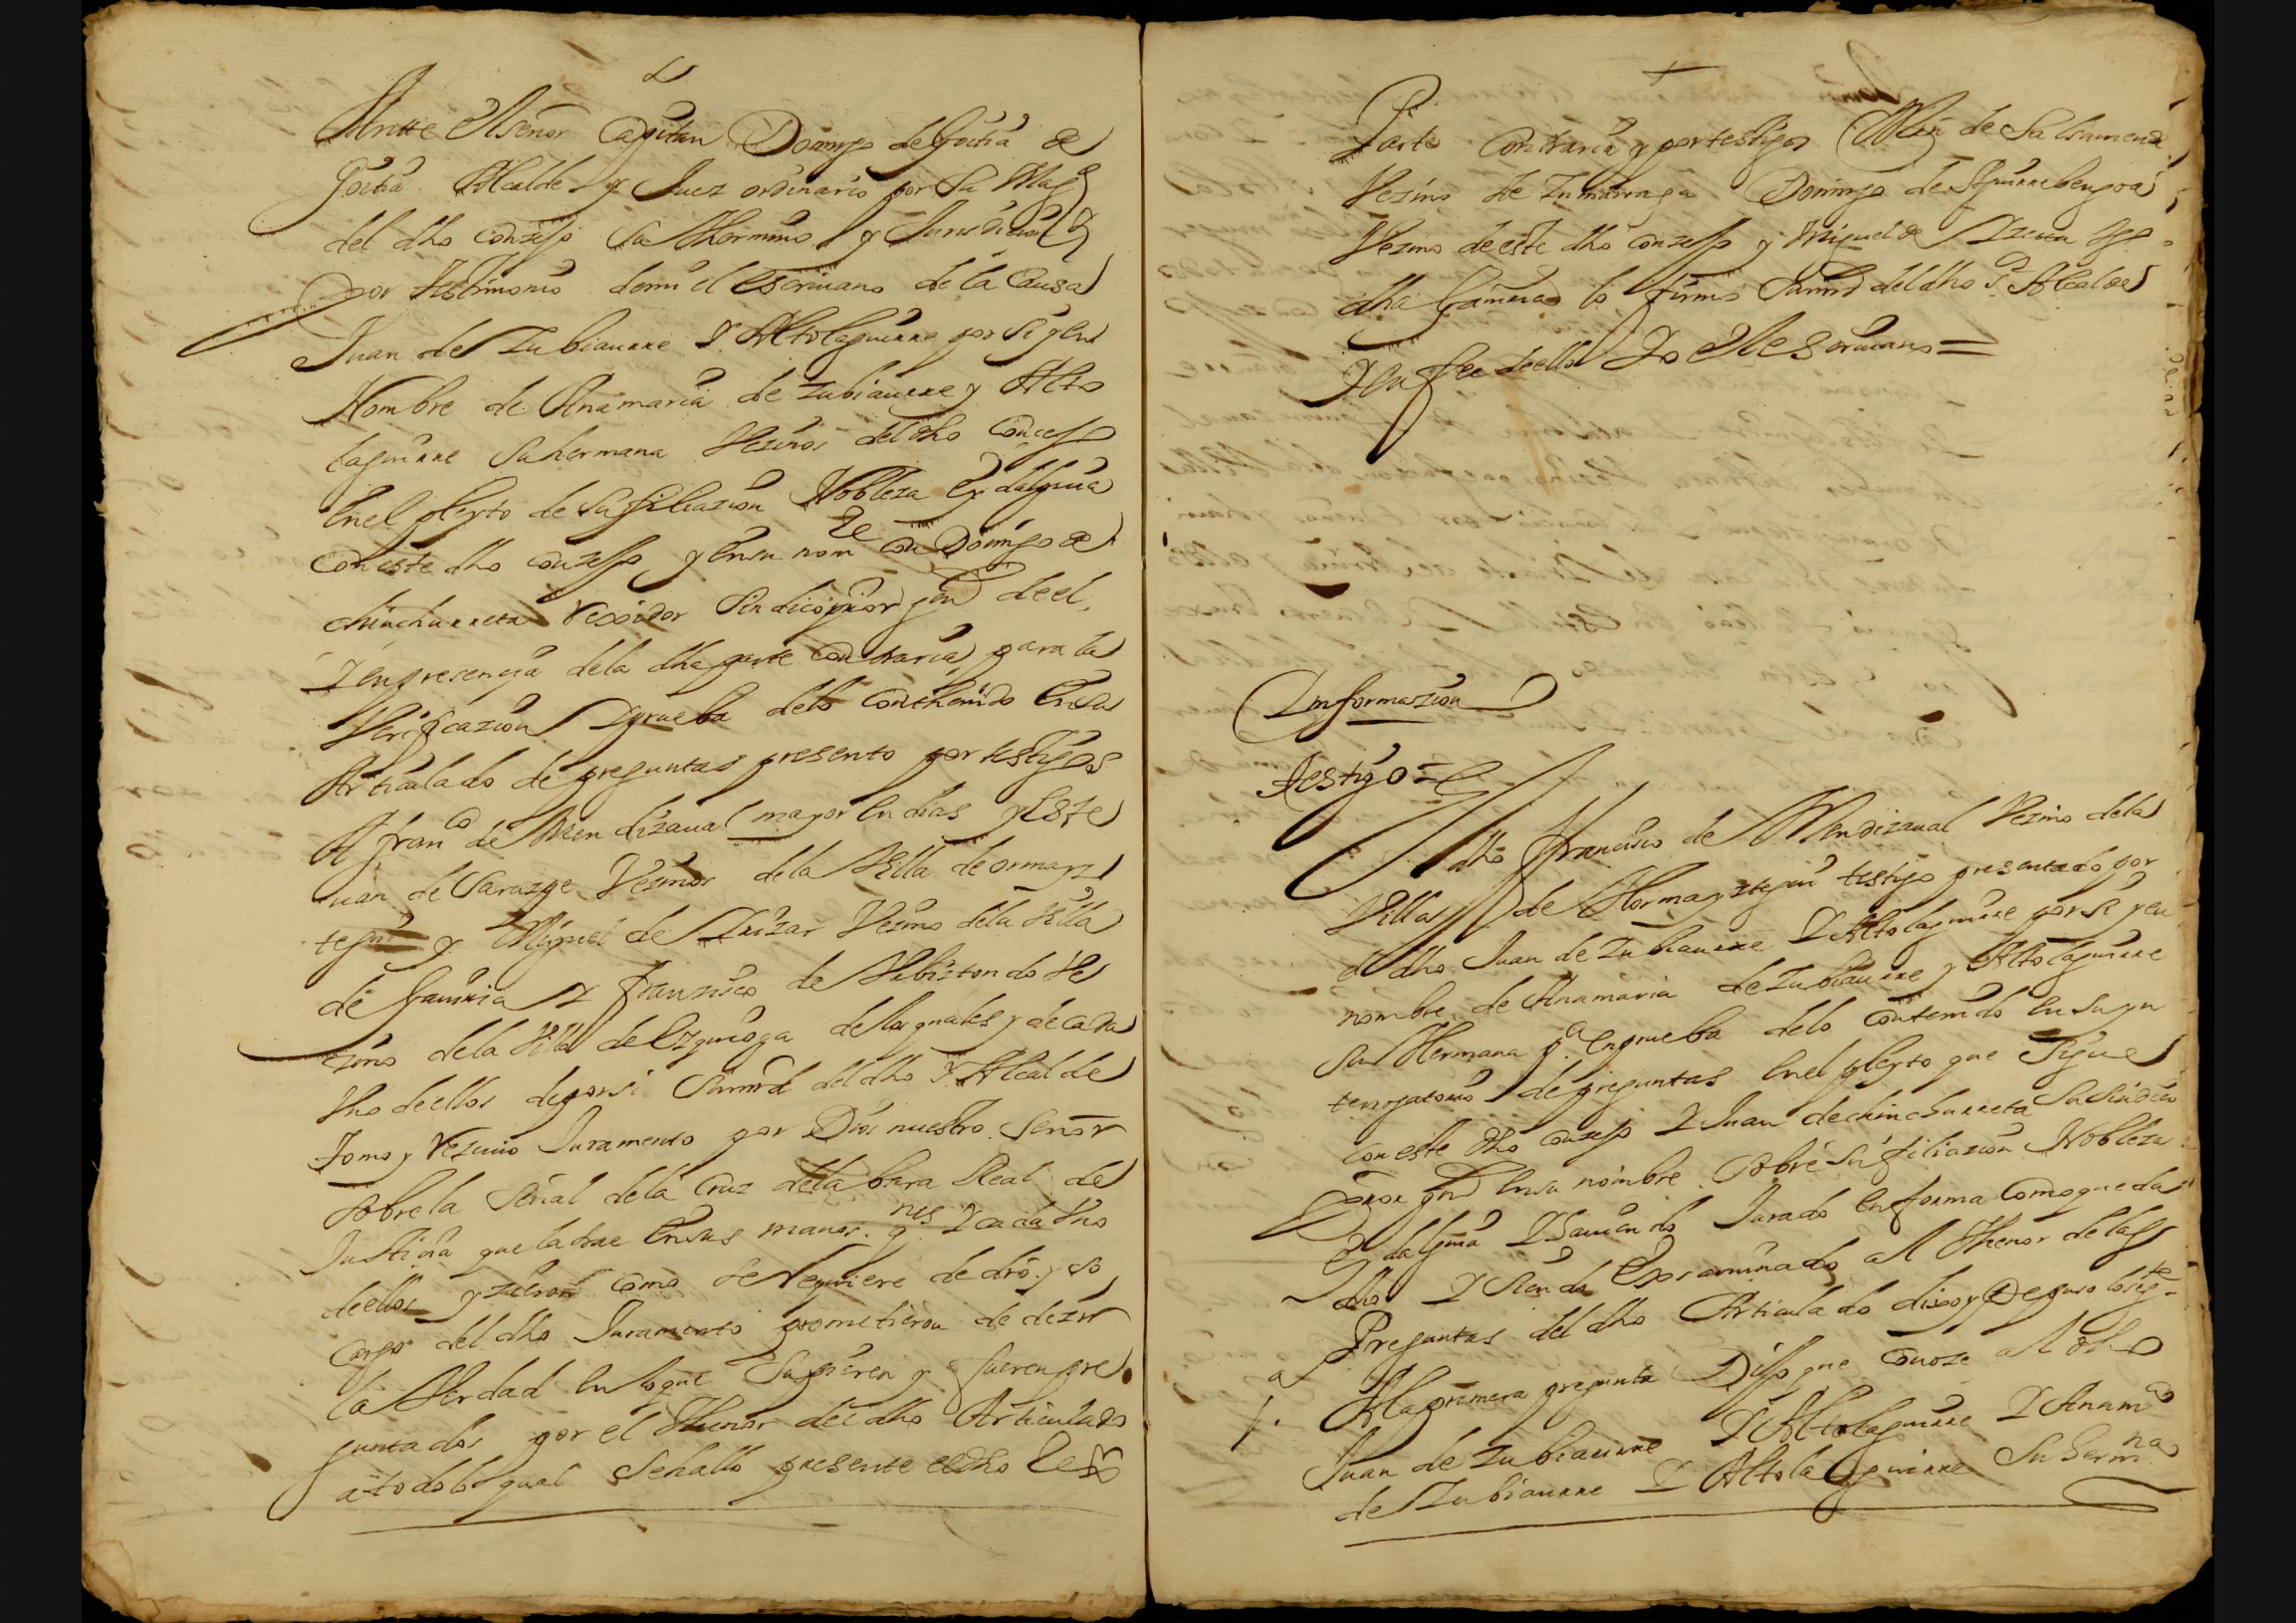 Antte el señor Capitan Domingo de Goitia de
Goitia Alcalde y Juez ordinario por Su Magd
del dho conzejo Su thermino y Jurisdicion
por testimonio de mi el escriuano de la Causa
Juan de Zubiaurre Y Altolaguirre por Si y en
Nombre de Anamaria de Zubiaurre y Alto
laguirre Su hermana Vezinos del dho Concejo
En el pleyto de Su filiazion Nobleza Eydalguia
Con este dho conzejo y en su nombre con Domingo de
chincharreta rexidor Sindico pror genl de el
Y en presencia de la dha parte contraria para la
Verificazion Y prueba de lo Conthenido En Su
Articulado de preguntas presento por testigos
A Franco de Mendizaual mayor en dias y Este
uan de Sarazge Vezinos de la Villa de ormayz
tegui y Miguel de Irizar Vezino de la Villa
de Gauiria Y Franzisco de Vrbiztondo Ve
zino de la Villa de Ezquioga de los quales y de Cada
Vno de ellos de por si Su mrd del dho Sr Alcalde
Tomo y Reziuio Juramento por Dios nuestro Señor
Sobre la Señal de la Cruz de la bara Real de
Justicia que la trae En Sus manos qnes Y cada Vno
de ellos yzieron como Se Requiere de dro y so
Cargo del dho Juramento prometieron de dezir
la Verdad En lo que Supieren y fueren pre
guntados por el thenor del dho Articulado
a todo lo qual Se hallo presente el dho
Parte Contraria y por testigos Min de Sa
Vezino de Zumarraga Domingo de Aguirrebengoa
Vezino de este dho Conzejo y Miguel de
dha Gauiria lo firmo Su mrd del dho Sr Alcalde
Y en fee de ello Yo el Escriuano =
Informazion
Testigo =
El dho Francisco de Mendizaual Vezino de la
Villa de Hormayztegui testigo presentado por
el dho Juan de Zubiaurre Y Altolaguirre por Si y en
nombre de Anamaria de Zubiaurre y Altolaguirre
Su Hermana pa En prueba de lo contenido En Su yn
terrogatorio de preguntas En el pleyto que Sigue
con este dho conzejo Y Juan de chincharreta Su Sindico
Pror genl En su nombre Sobre Su filiazion Nobleza
Eydalguia Y Sauiendo Jurado En forma Como queda
dho Y Siendo Exsaminado al thenor de las
Preguntas del dho Articulado dixo y Depuso lo sigte
1. A la primera pregunta Dijo que Conoze al dho
Juan de Zubiaurre Y Altolaguirre Y Anama
de Zubiaurre Y Altolaguirre Su Hermna